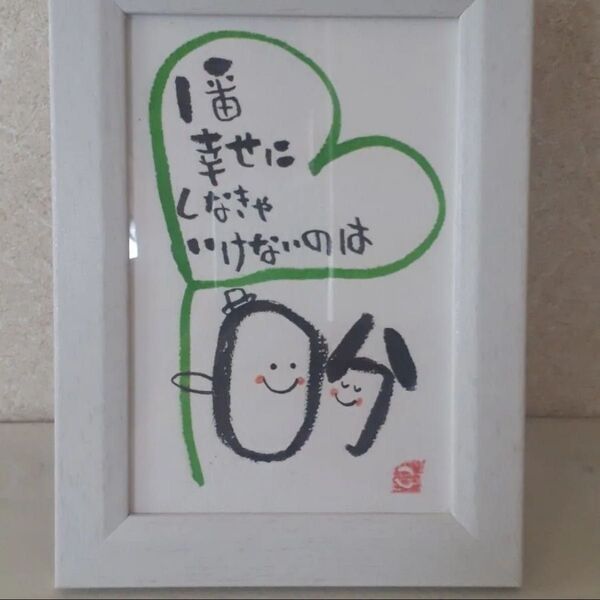 1番
幸せに
しなきゃ
いけないのは
自分